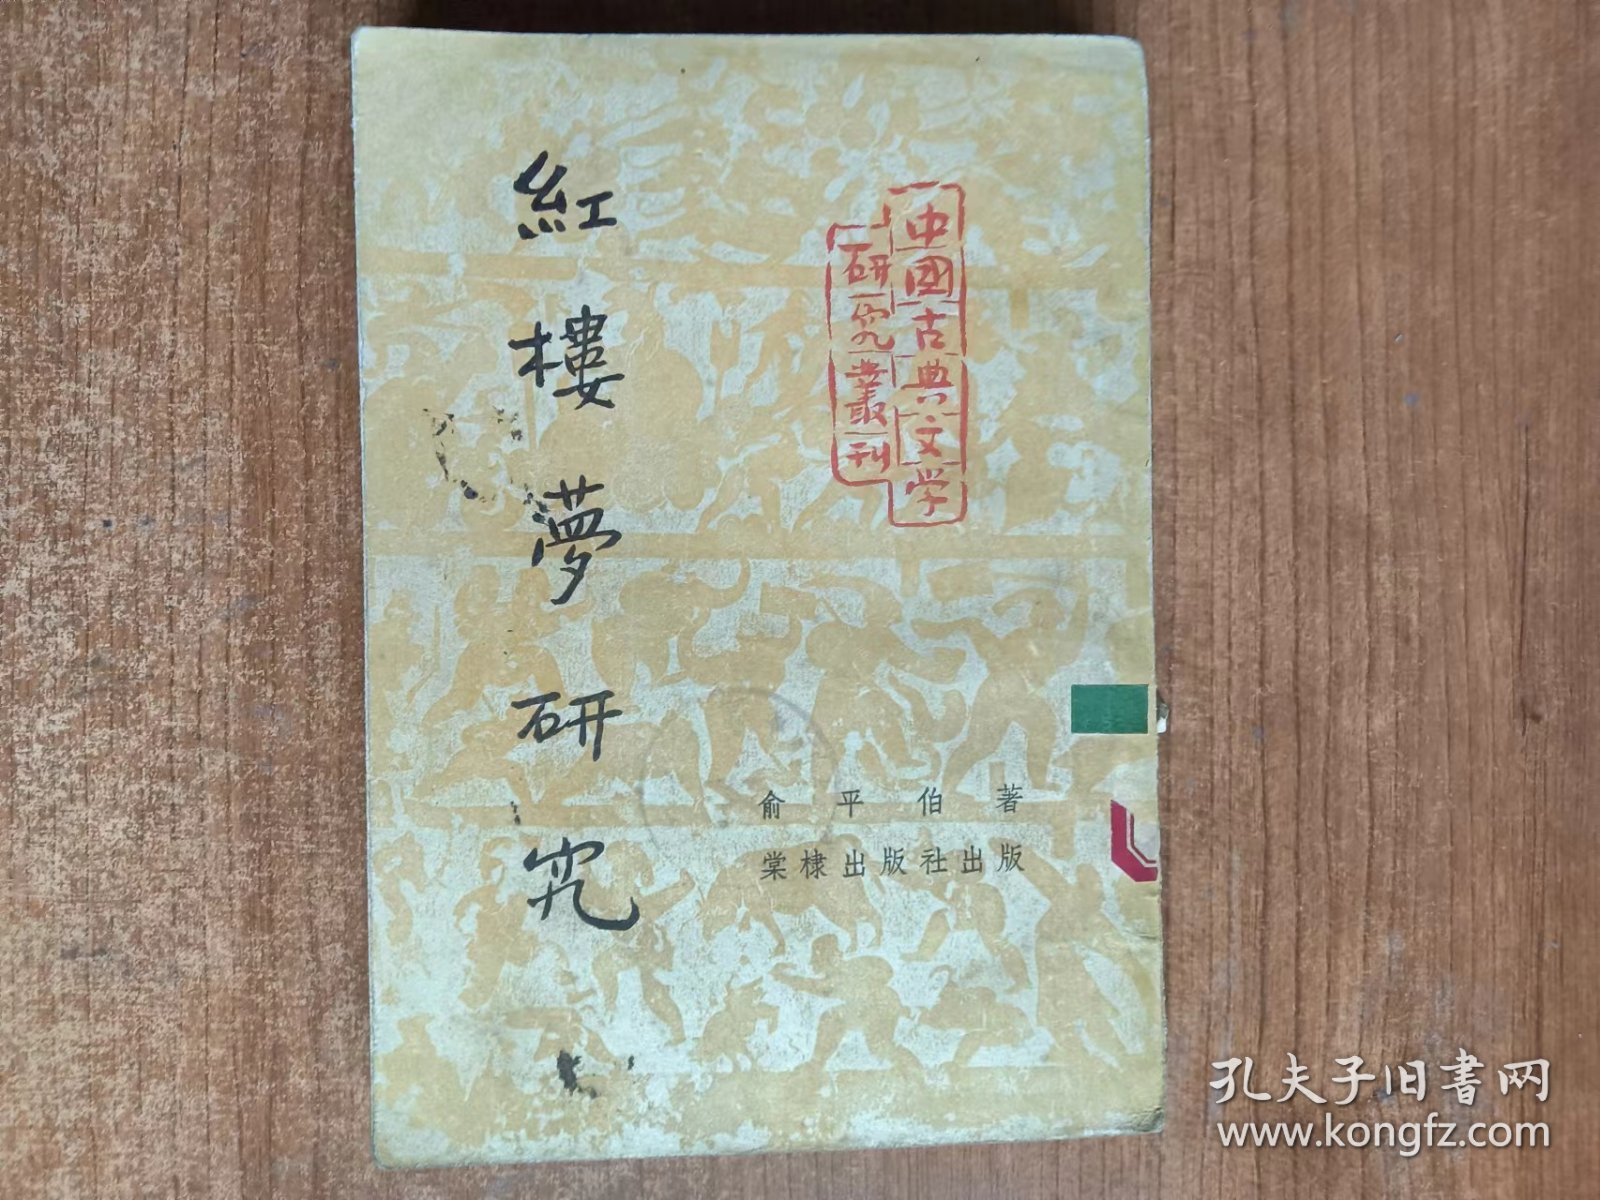 中國古典文学
研究叢刊
紅樓夢研究
俞平伯著
棠棣出版社出版
孔夫子旧書网
www.kongfz.com